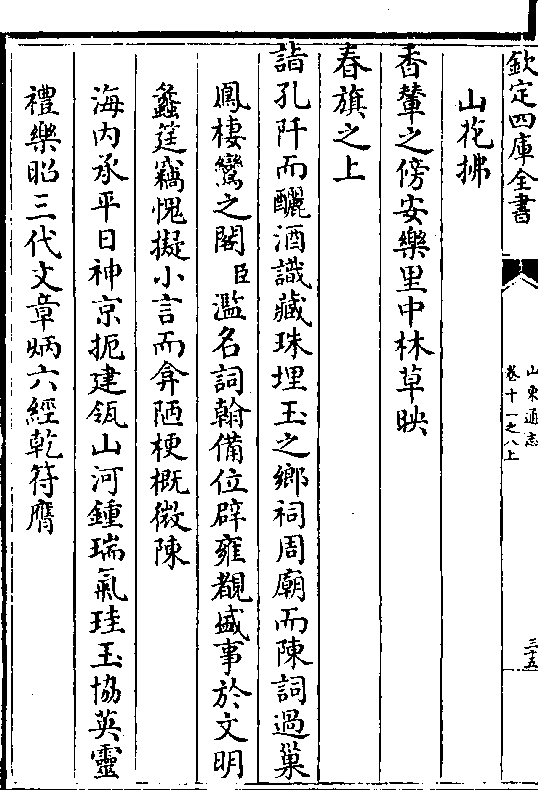 欽定四庫全書
山東通志
卷十一之八上
三十五
山花拂
香輦之傍安樂里中林草映
春旗之上
詣孔阡而釃酒識藏珠埋玉之鄉祠周廟而陳詞過巢
鳳棲鸞之閣臣濫名詞翰備位辟雍覩盛事於文明
蠡筳竊愧擬小言而弇陋梗概微陳
海内承平日神京扼建瓴山河鍾瑞氣珪玉協英靈
禮樂昭三代文章炳六經乾符膺